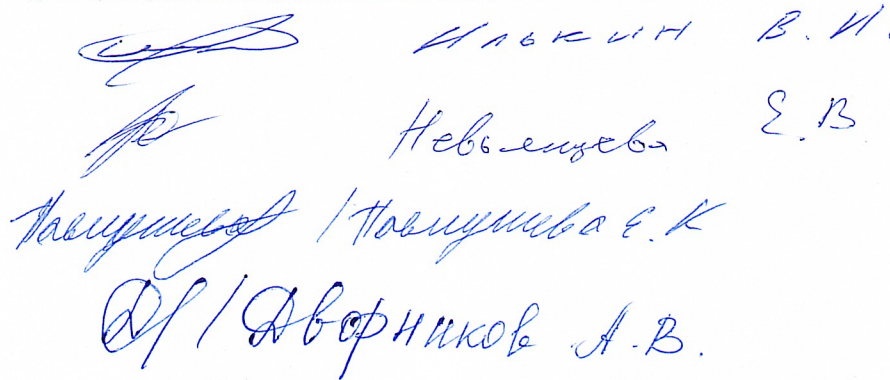 Илькин В.И.
Невьянцева Е.В
Павлушева / Павлушева Е.К
Д / Дворников А.В.